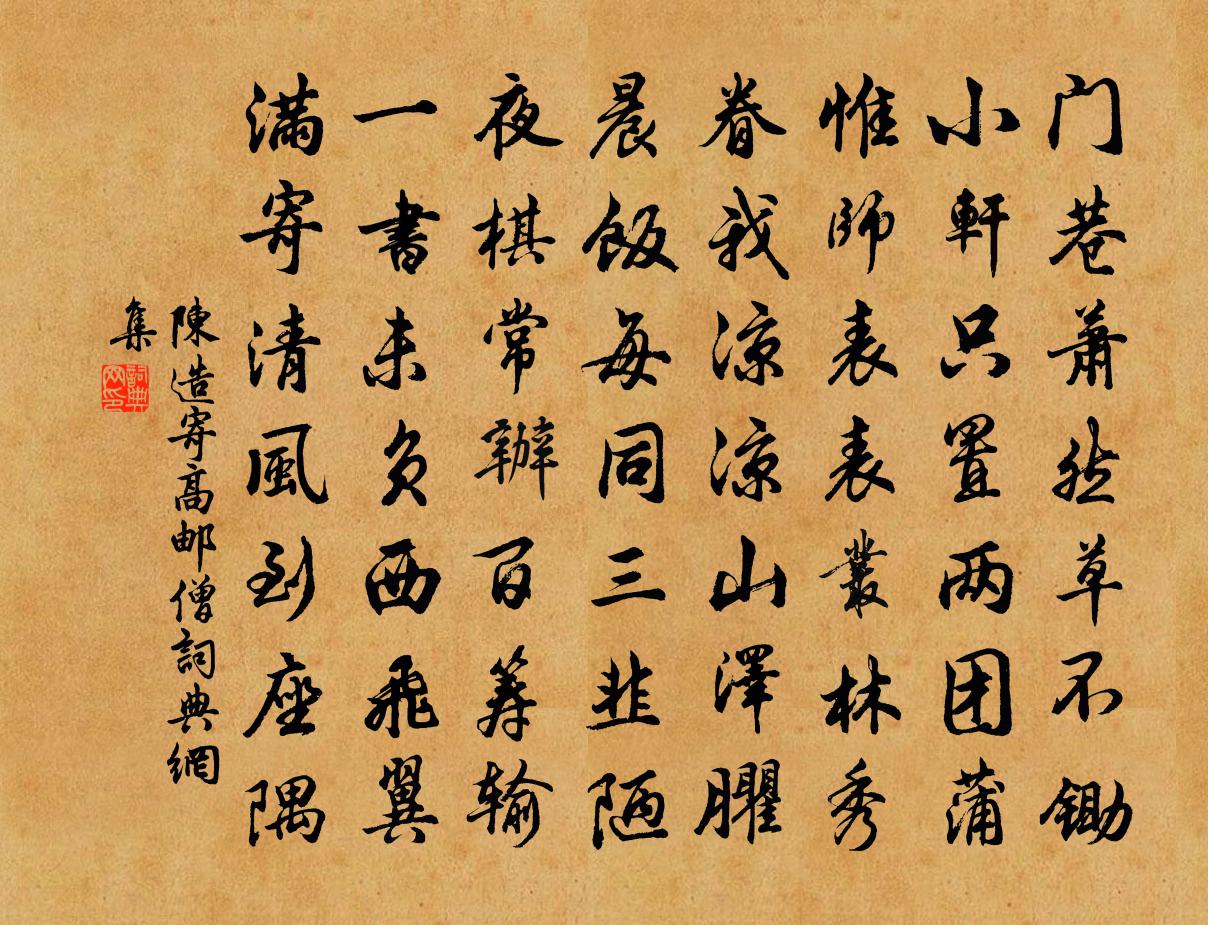 门巷萧然草不锄
小軒只置两团蒲
惟師表表叢林秀
眷我凉凉山澤臞
晨飯每同三韭陋
夜棋常辦百筹输
一書未负西飛翼
满寄清風到座隅
陳造寄高邮僧詞典網
集
詞典网印